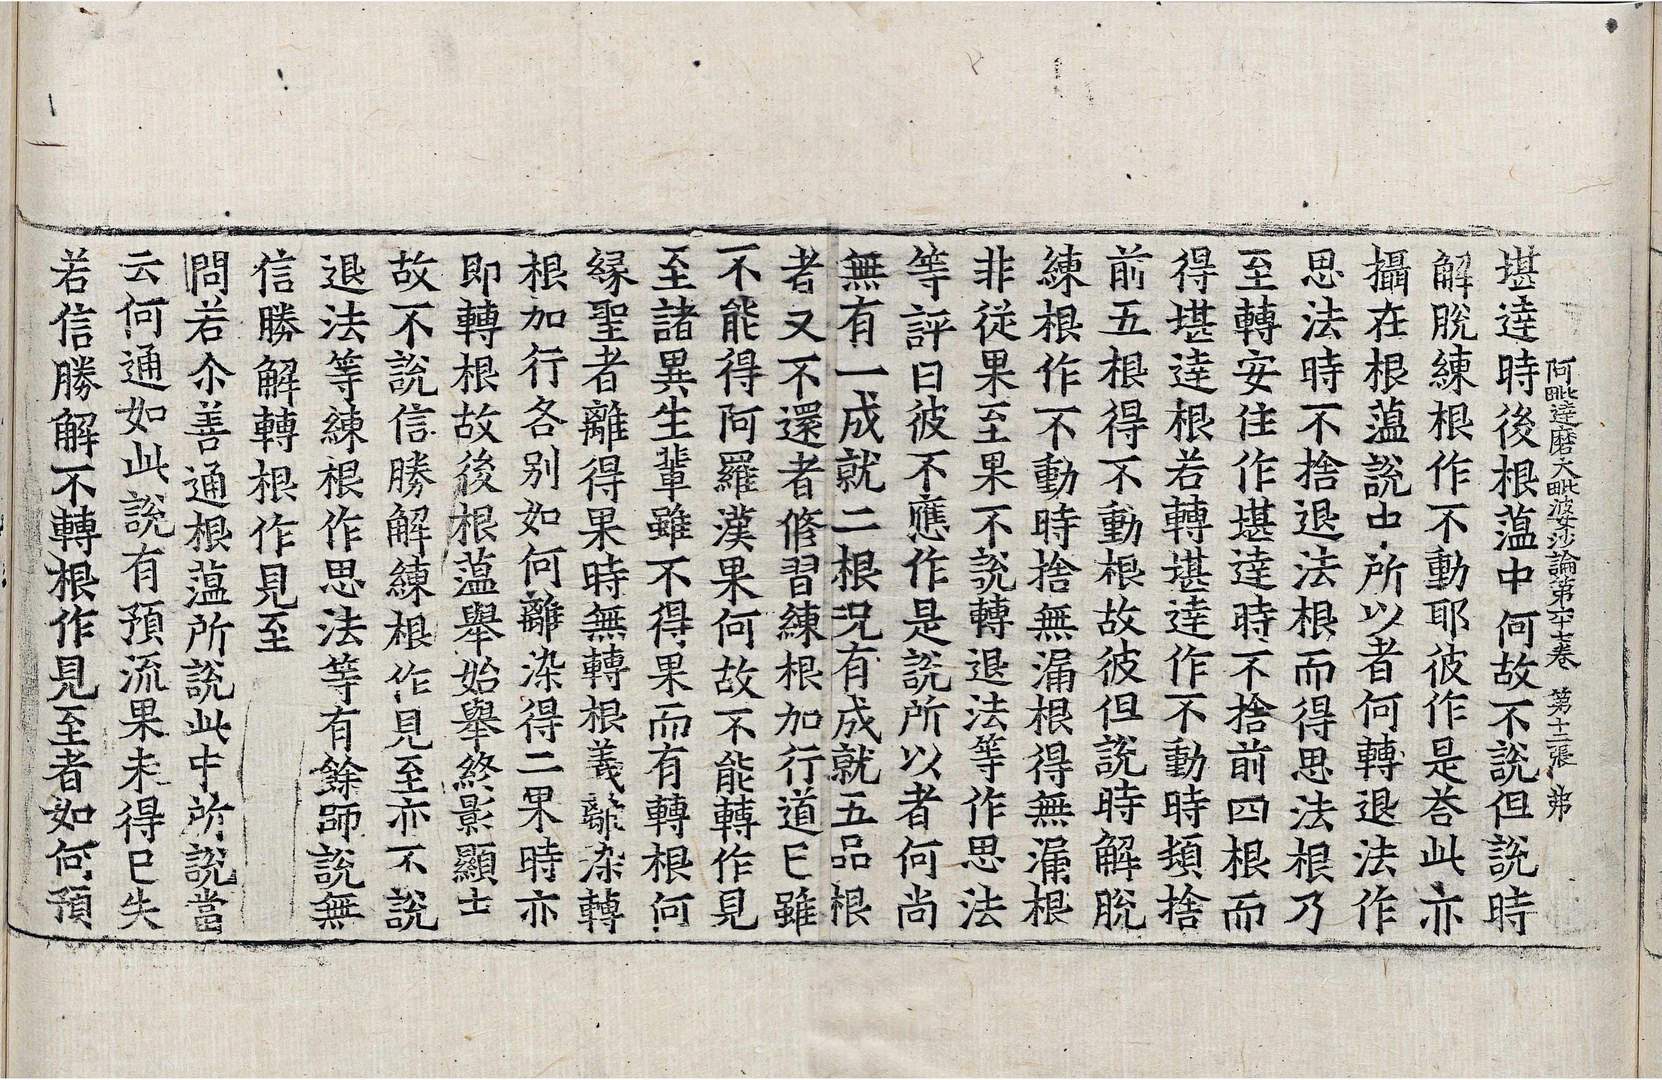 阿毗達磨大毗婆沙論第六十七卷　第十二張　弟
堪達時後根蘊中何故不說但說時
解脫練根作不動耶彼作是荅此亦
攝在根蘊說中所以者何轉退法作
思法時不捨退法根而得思法根乃
至轉安住作堪達時不捨前四根而
得堪達根若轉堪達作不動時頓捨
前五根得不動根故彼但說時解脫
練根作不動時捨無漏根得無漏根
非從果至果不說轉退法等作思法
等評曰彼不應作是說所以者何尚
無有一成就二根況有成就五品根
者又不還者修習練根加行道已雖
不能得阿羅漢果何故不能轉作見
至諸異生輩雖不得果而有轉根何
緣聖者離得果時無轉根義離染轉
根加行各別如何離染得二果時亦
即轉根故後根蘊舉始舉終影顯士
故不說信勝解練根作見至亦不說
退法等練根作思法等有餘師說無
信勝解轉根作見至
問若尒善通根蘊所說此中所說當
云何通如此說有預流果未得已失
若信勝解不轉根作見至者如何預